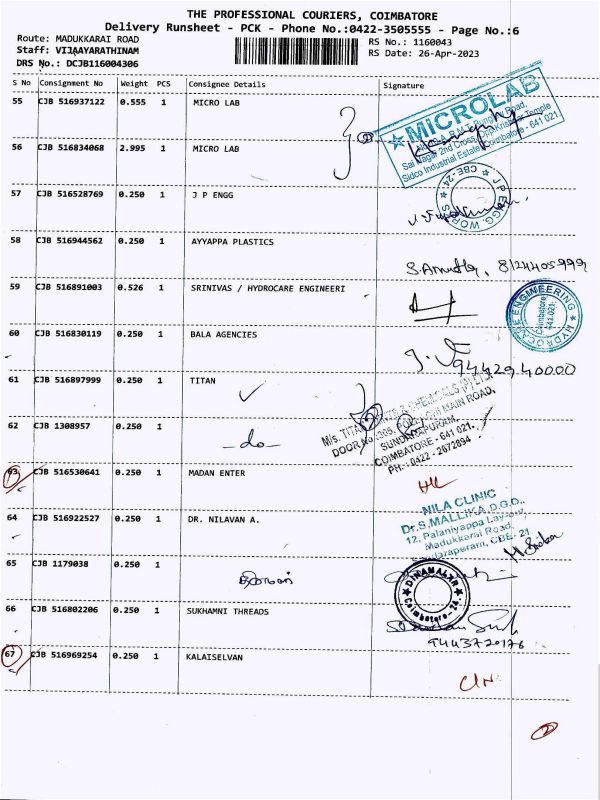 THE PROFESSIONAL COURIERS, COIMBATORE
Delivery Runsheet - PCK - Phone No.:0422-3505555 - Page No.:6
Route: MADUKKARAI ROAD
RS No.: 1160043
Staff: VIJAAYARATHINAM
RS Date: 26-Apr-2023
DRS No.: DCJB116004306
S No Consignment No Weight PCS Consignee Details Signature
55 CJB 516937122 0.555 1 MICRO LAB
MICROLAB
Sai Nagar 2nd Cross, Opp.Krishnar Temple
Sidco Industrial Estate, Coimbatore - 641 021.
56 CJB 516834068 2.995 1 MICRO LAB
57 CJB 516528769 0.250 1 J P ENGG
J P ENGG WORKS
CBE-24.
58 CJB 516944562 0.250 1 AYYAPPA PLASTICS
8124405999
59 CJB 516891003 0.526 1 SRINIVAS / HYDROCARE ENGINEERI
HYDROCARE ENGINEERING
Coimbatore
641 021.
60 CJB 516830119 0.250 1 BALA AGENCIES
9442940000
61 CJB 516897999 0.250 1 TITAN
M/s. TITAN PAINTS & CHEMICALS (P) LTD.
DOOR No. 305, POLLACHI MAIN ROAD,
SUNDARAPURAM,
COIMBATORE - 641 021.
PH-: 0422 - 2672894
62 CJB 1308957 0.250 1
-do-
63 CJB 516530641 0.250 1 MADAN ENTER
64 CJB 516922527 0.250 1 DR. NILAVAN A.
NILA CLINIC
Dr.S.MALLIKA,D.G.O.,
12, Palaniyappa Lay-out,
Madukkarai Road,
Sundarapuram, CBE- 21
65 CJB 1179038 0.250 1
DINAMALAR
Coimbatore-24.
66 CJB 516802206 0.250 1 SUKHAMNI THREADS
9443720176
67 CJB 516969254 0.250 1 KALAISELVAN